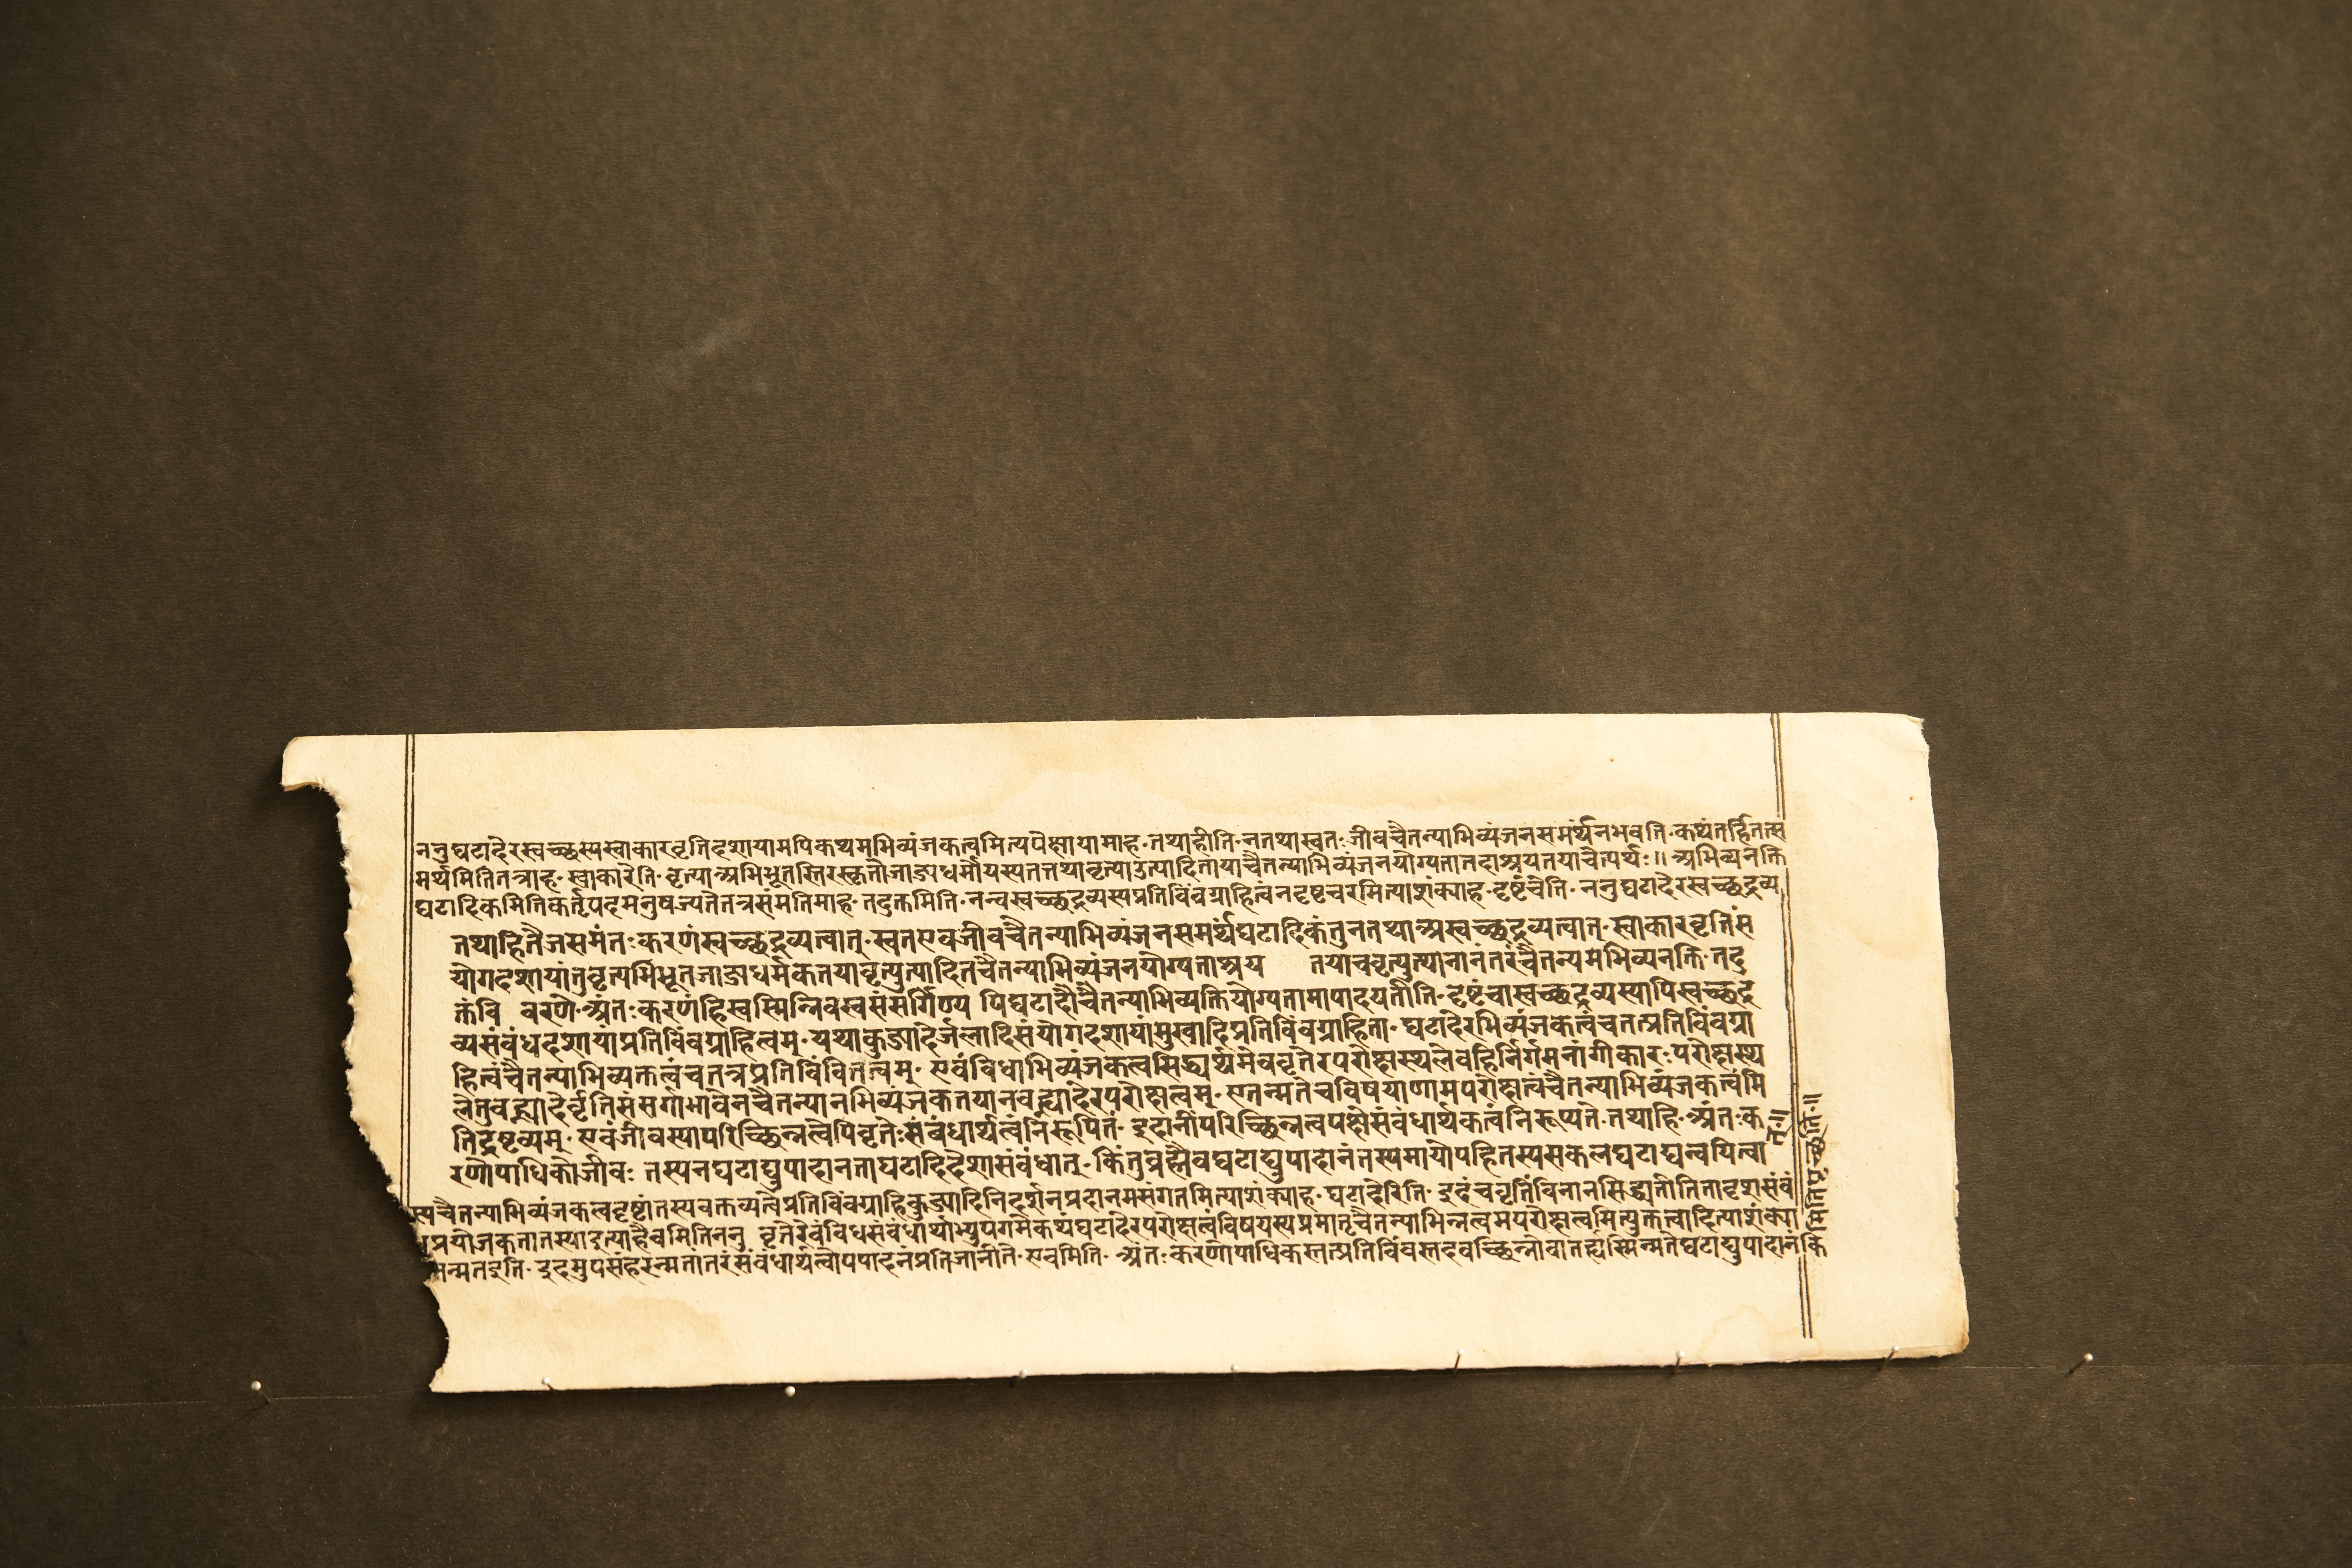 ननुघटादेरस्वच्छस्यस्वाकारवृत्तिदशायामपिकथमभिव्यंजकत्वमित्यपेक्षायामाह·तथाहीति·नतथास्वतःजीवचैतन्याभिव्यंजनसमर्थंनभवति·कथंतर्हितत्स
मर्थमितितत्राह·स्वाकारेति·वृत्याअभिभूतस्तिरस्कृतोजाड्यधर्मोयस्यतत्तयावृत्योउत्पादितायाचैतन्याभिव्यंजनयोग्यतातदाश्रयतयाचेत्यर्थः॥अभिव्यनक्ति
घटादिकमितिकर्तृपदमनुषज्यतेतत्रसंमतिमाह·तदुक्तमिति·नन्वस्वच्छद्रव्यस्यप्रतिविंवग्राहित्वंनदृष्टचरमित्याशंक्याह·दृष्टंचेति·ननुघटादेरस्वच्छद्रव्य
तथाहितैजसमंतःकरणंस्वच्छद्रव्यत्वात्·स्वतएवजीवचैतन्याभिव्यंजनसमर्थंघटादिकंतुनतथाअस्वच्छद्रव्यत्वात्·स्वाकारवृत्तिसं
योगदशायांतुवृत्यभिभूतजाड्यधर्मकतयावृत्युत्पादितचैतन्याभिव्यंजनयोग्यताश्रय तयाचवृत्युत्पानानंतरंचैतन्यमभिव्यनक्ति·तदु
क्तंवि वरणे·अंतःकरणंहिस्वस्मिन्निवस्वसंसर्गिण्य पिघटादौचैतन्याभिव्यक्तियोग्यतामापादयतीति·दृष्टंचास्वच्छद्रव्यस्यापिस्वच्छद्र
व्यसंवंधदशायांप्रतिविंवग्राहित्वम्·यथाकुड्यादेर्जलादिसंयोगदशायांमुखादिप्रतिविंवग्राहिता·घटादेरभिव्यंजकत्वंचतत्प्रतिविंवग्रा
हित्वंचैतन्याभिव्यक्तत्वंचतत्रप्रतिविंवितत्वम्·एवंविधाभिव्यंजकत्वसिद्ध्यर्थमेववृत्तेरपरोक्षस्थलेवहिर्निर्गमनांगीकारःपरोक्षस्थ
लेतुवह्न्यादेर्वृत्तिसंसर्गाभावेनचैतन्यानभिव्यंजकतयानवह्न्यादेरपरोक्षत्वम्·एतन्मतेचविषयाणामपरोक्षत्वंचैतन्याभिव्यंजकत्वंमि
तिद्रष्टव्यम्·एवंजीवस्यापरिच्छिन्नत्वेपिवृत्तेःसंबंधार्थत्वंनिरूपितं·इदानींपरिच्छिन्नत्वपक्षेसंवंधार्थकत्वंनिरूप्यते·तथाहि·अंतःक
रणोपाधिकोजीवः तस्यनघटाद्युपादानताघटादिदेशासंवंधात्·किंतुब्रह्मैवघटाद्युपादानंतस्यमायोपहितस्यसकलघटाद्यन्वयित्वा
स्यचैतन्याभिव्यंजकत्वदृष्टांतस्यवक्तव्यत्वेप्रतिविंवग्राहिकुड्यादिनिदर्शनप्रदानमसंगतमित्याशंक्याह·घटादेरिति·इदंचवृत्तिंविनानसिद्ध्यतीतितादृशसंवं
प्रयोजकतातस्याइत्याहैवमितिननु वृत्तेरेवंविधसंवंधार्थाभ्युपगमेकथंघटादेरपरोक्षत्वंविषयस्यप्रमातृचैतन्याभिन्नत्वमपरोक्षत्वमित्युक्तत्वादित्याशंक्या
न्मतइति·इदमुपसंहरन्मतांतरंसंवंधार्थत्वोपपादनंप्रतिजानीते·एवमिति·अंतःकरणोपाधिकस्तत्प्रतिविंवस्तदवच्छिन्नोवातह्यस्मिन्मतेघटाद्युपादानंकि